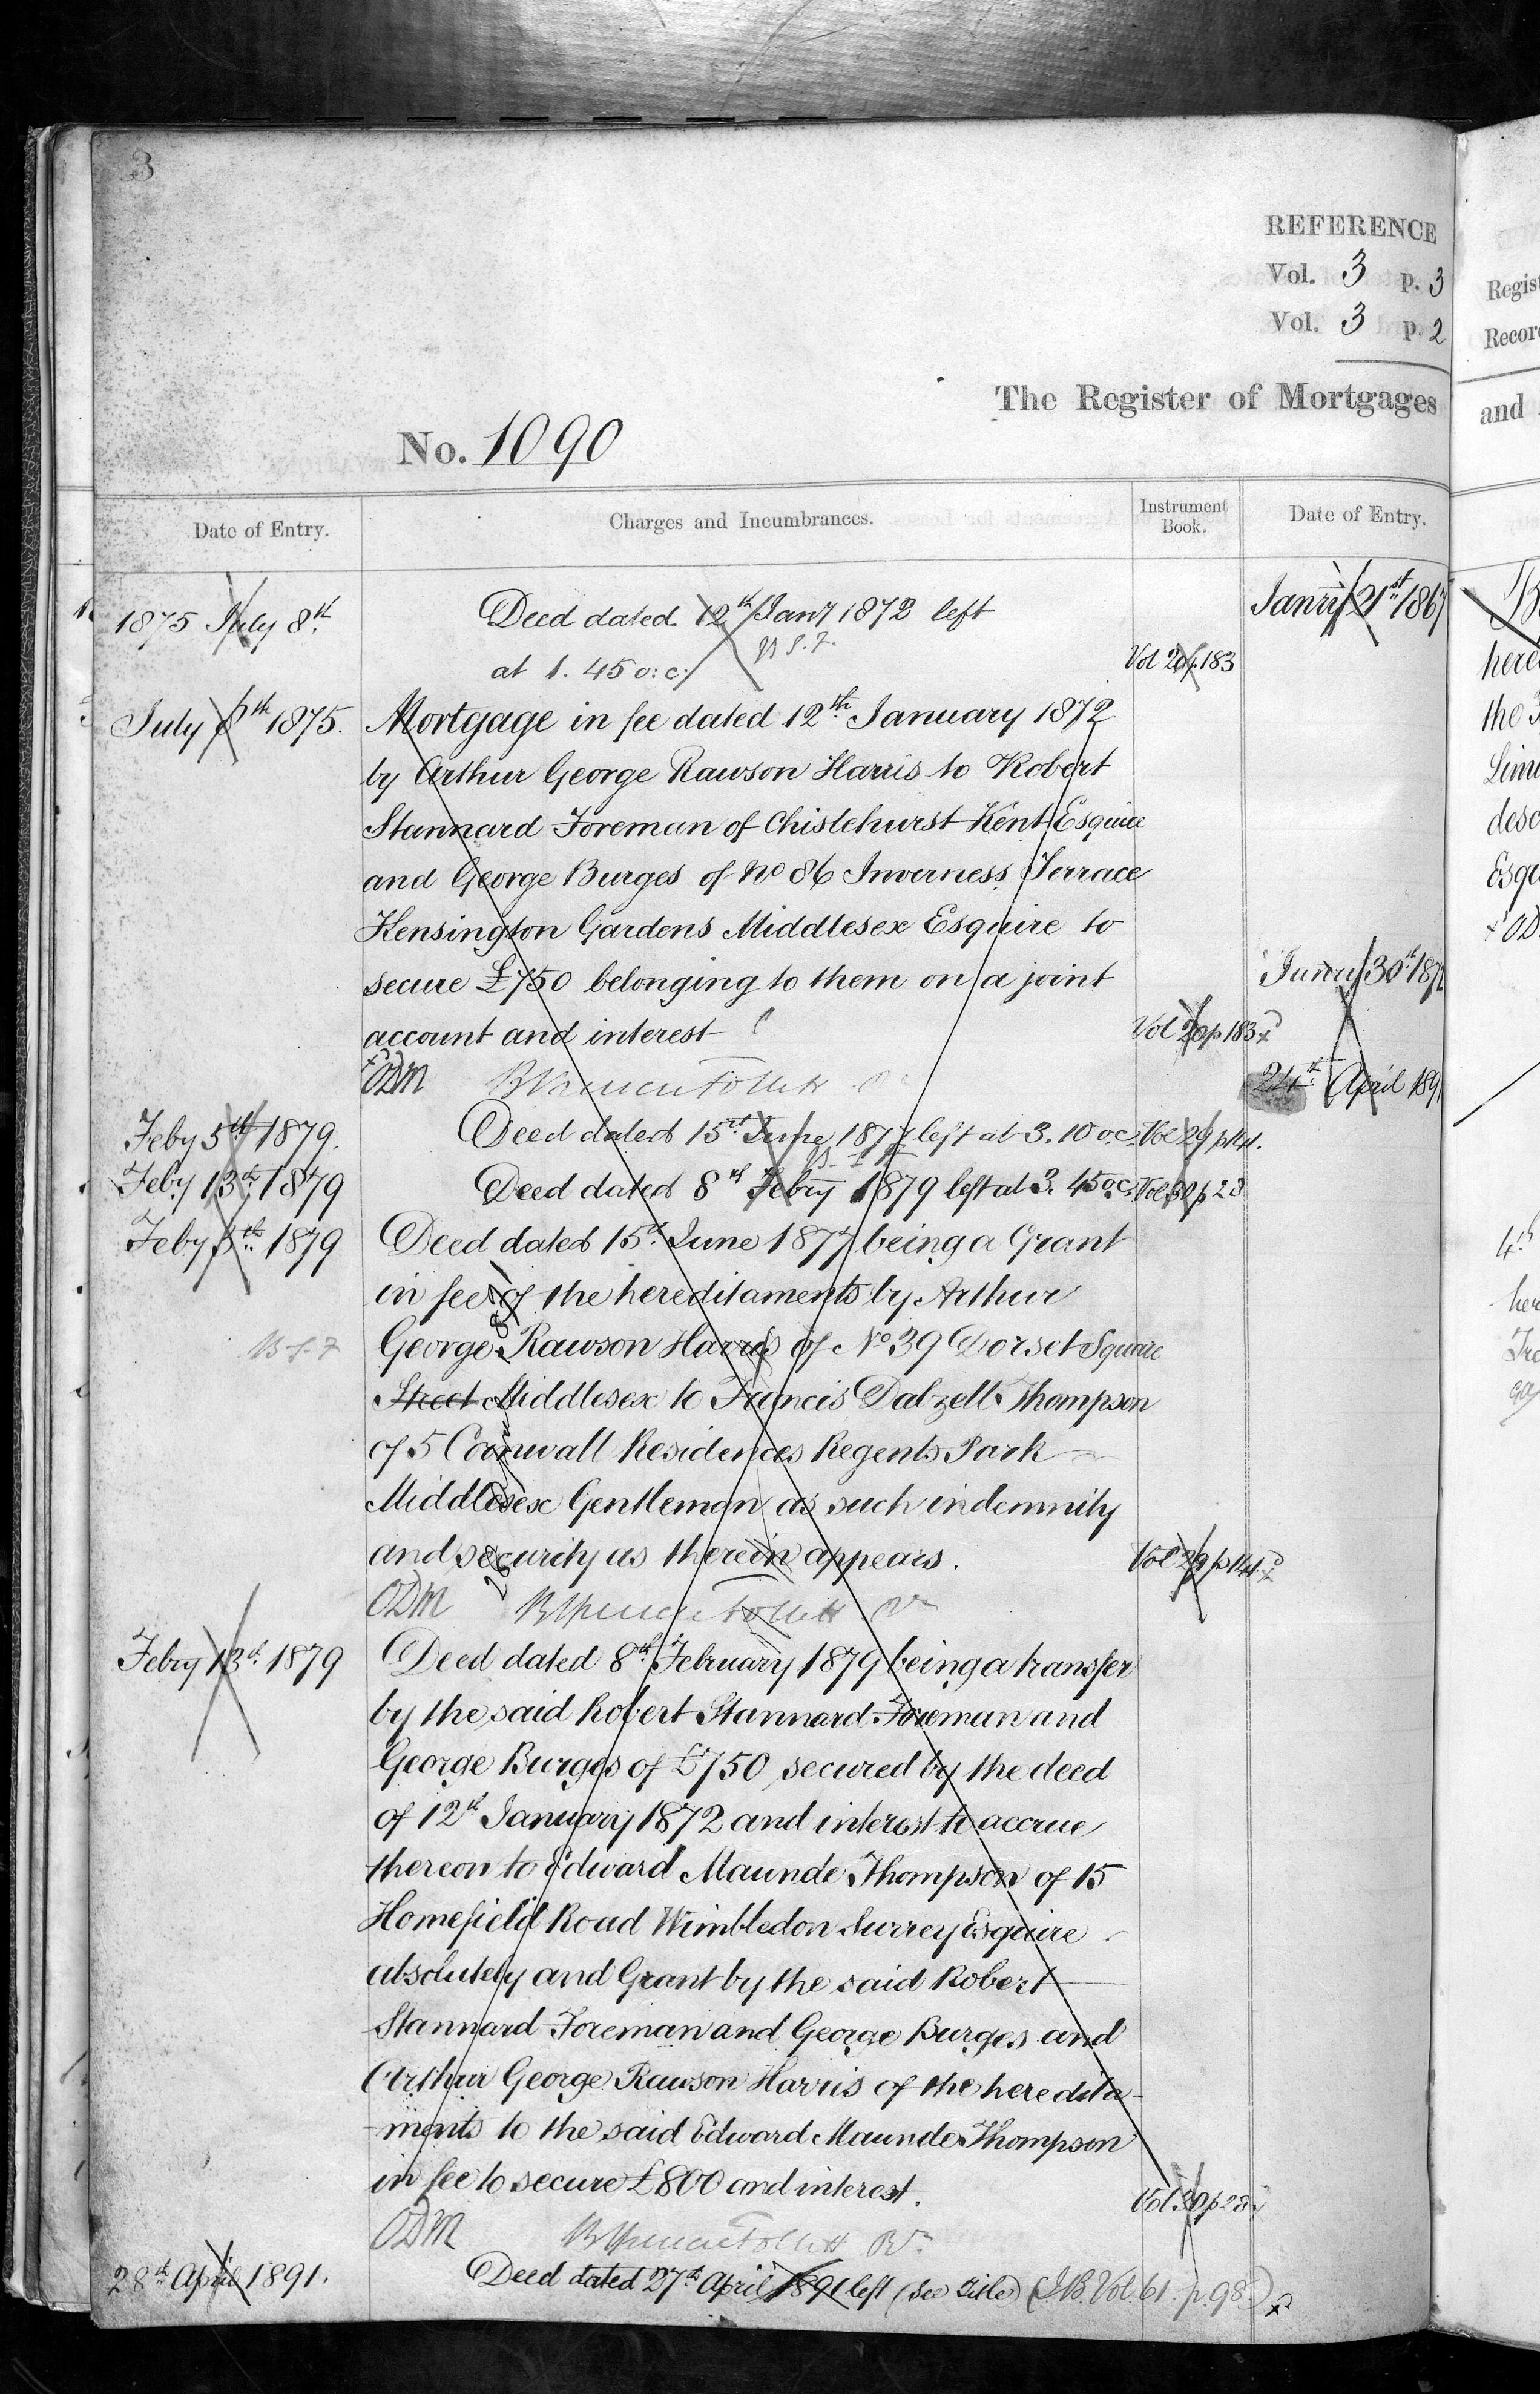 3
REFERENCE
Vol. 3 p. 3
Vol. 3 p. 2
The Register of Mortgages
No. 1090
Date of Entry.
Charges and Incumbrances.
Instrument Book.
Date of Entry.
1875 July 8th
Deed dated 12th Jany 1872 left
at 1. 45 o:c.
B S. F.
Vol 20 p 183
Janry 21st 1867
July 8th 1875.
Mortgage in fee dated 12th January 1872
by Arthur George Rawson Harris to Robert
Stannard Foreman of Chislehurst Kent Esquire
and George Burges of No 86 Inverness Terrace
Kensington Gardens Middlesex Esquire to
secure £750 belonging to them on a joint
account and interest
Vol 20 p 183
Janry 30th 187
ODM
24th April 189
Feby 5th 1879.
Deed dated 15th June 1877 left at 3. 10 o.c.
Vol 29 p 141.
Feby 13th 1879
Deed dated 8th Febry 1879 left at 3. 45 o.c.
Vol 30 p 28
Feby 5th 1879
Deed dated 15th June 1877 being a Grant
in fee of the hereditaments by Arthur
B S F
George Rawson Harris of No 39 Dorset Square
Street Middlesex to Francis Dalzell Thompson
of 5 Cornwall Residences Regents Park
Middlesex Gentleman as such indemnity
and security as therein appears.
Vol 29 p 141
ODM
Febry 13th 1879
Deed dated 8th February 1879 being a transfer
by the said Robert Stannard Foreman and
George Burges of £750 secured by the deed
of 12th January 1872 and interest to accrue
thereon to Edward Maunde Thompson of 15
Homefield Road Wimbledon Surrey Esquire
absolutely and Grant by the said Robert
Stannard Foreman and George Burges and
Arthur George Rawson Harris of the heredita-
-ments to the said Edward Maunde Thompson
in fee to secure £800 and interest.
Vol 30 p 28
ODM
28th April 1891.
Deed dated 27th April 1891 left (see title) (I.B. Vol. 61. p. 98.)
Regis
Recor
and
here
the
Limi
desc
Esqu
OD
4th
her